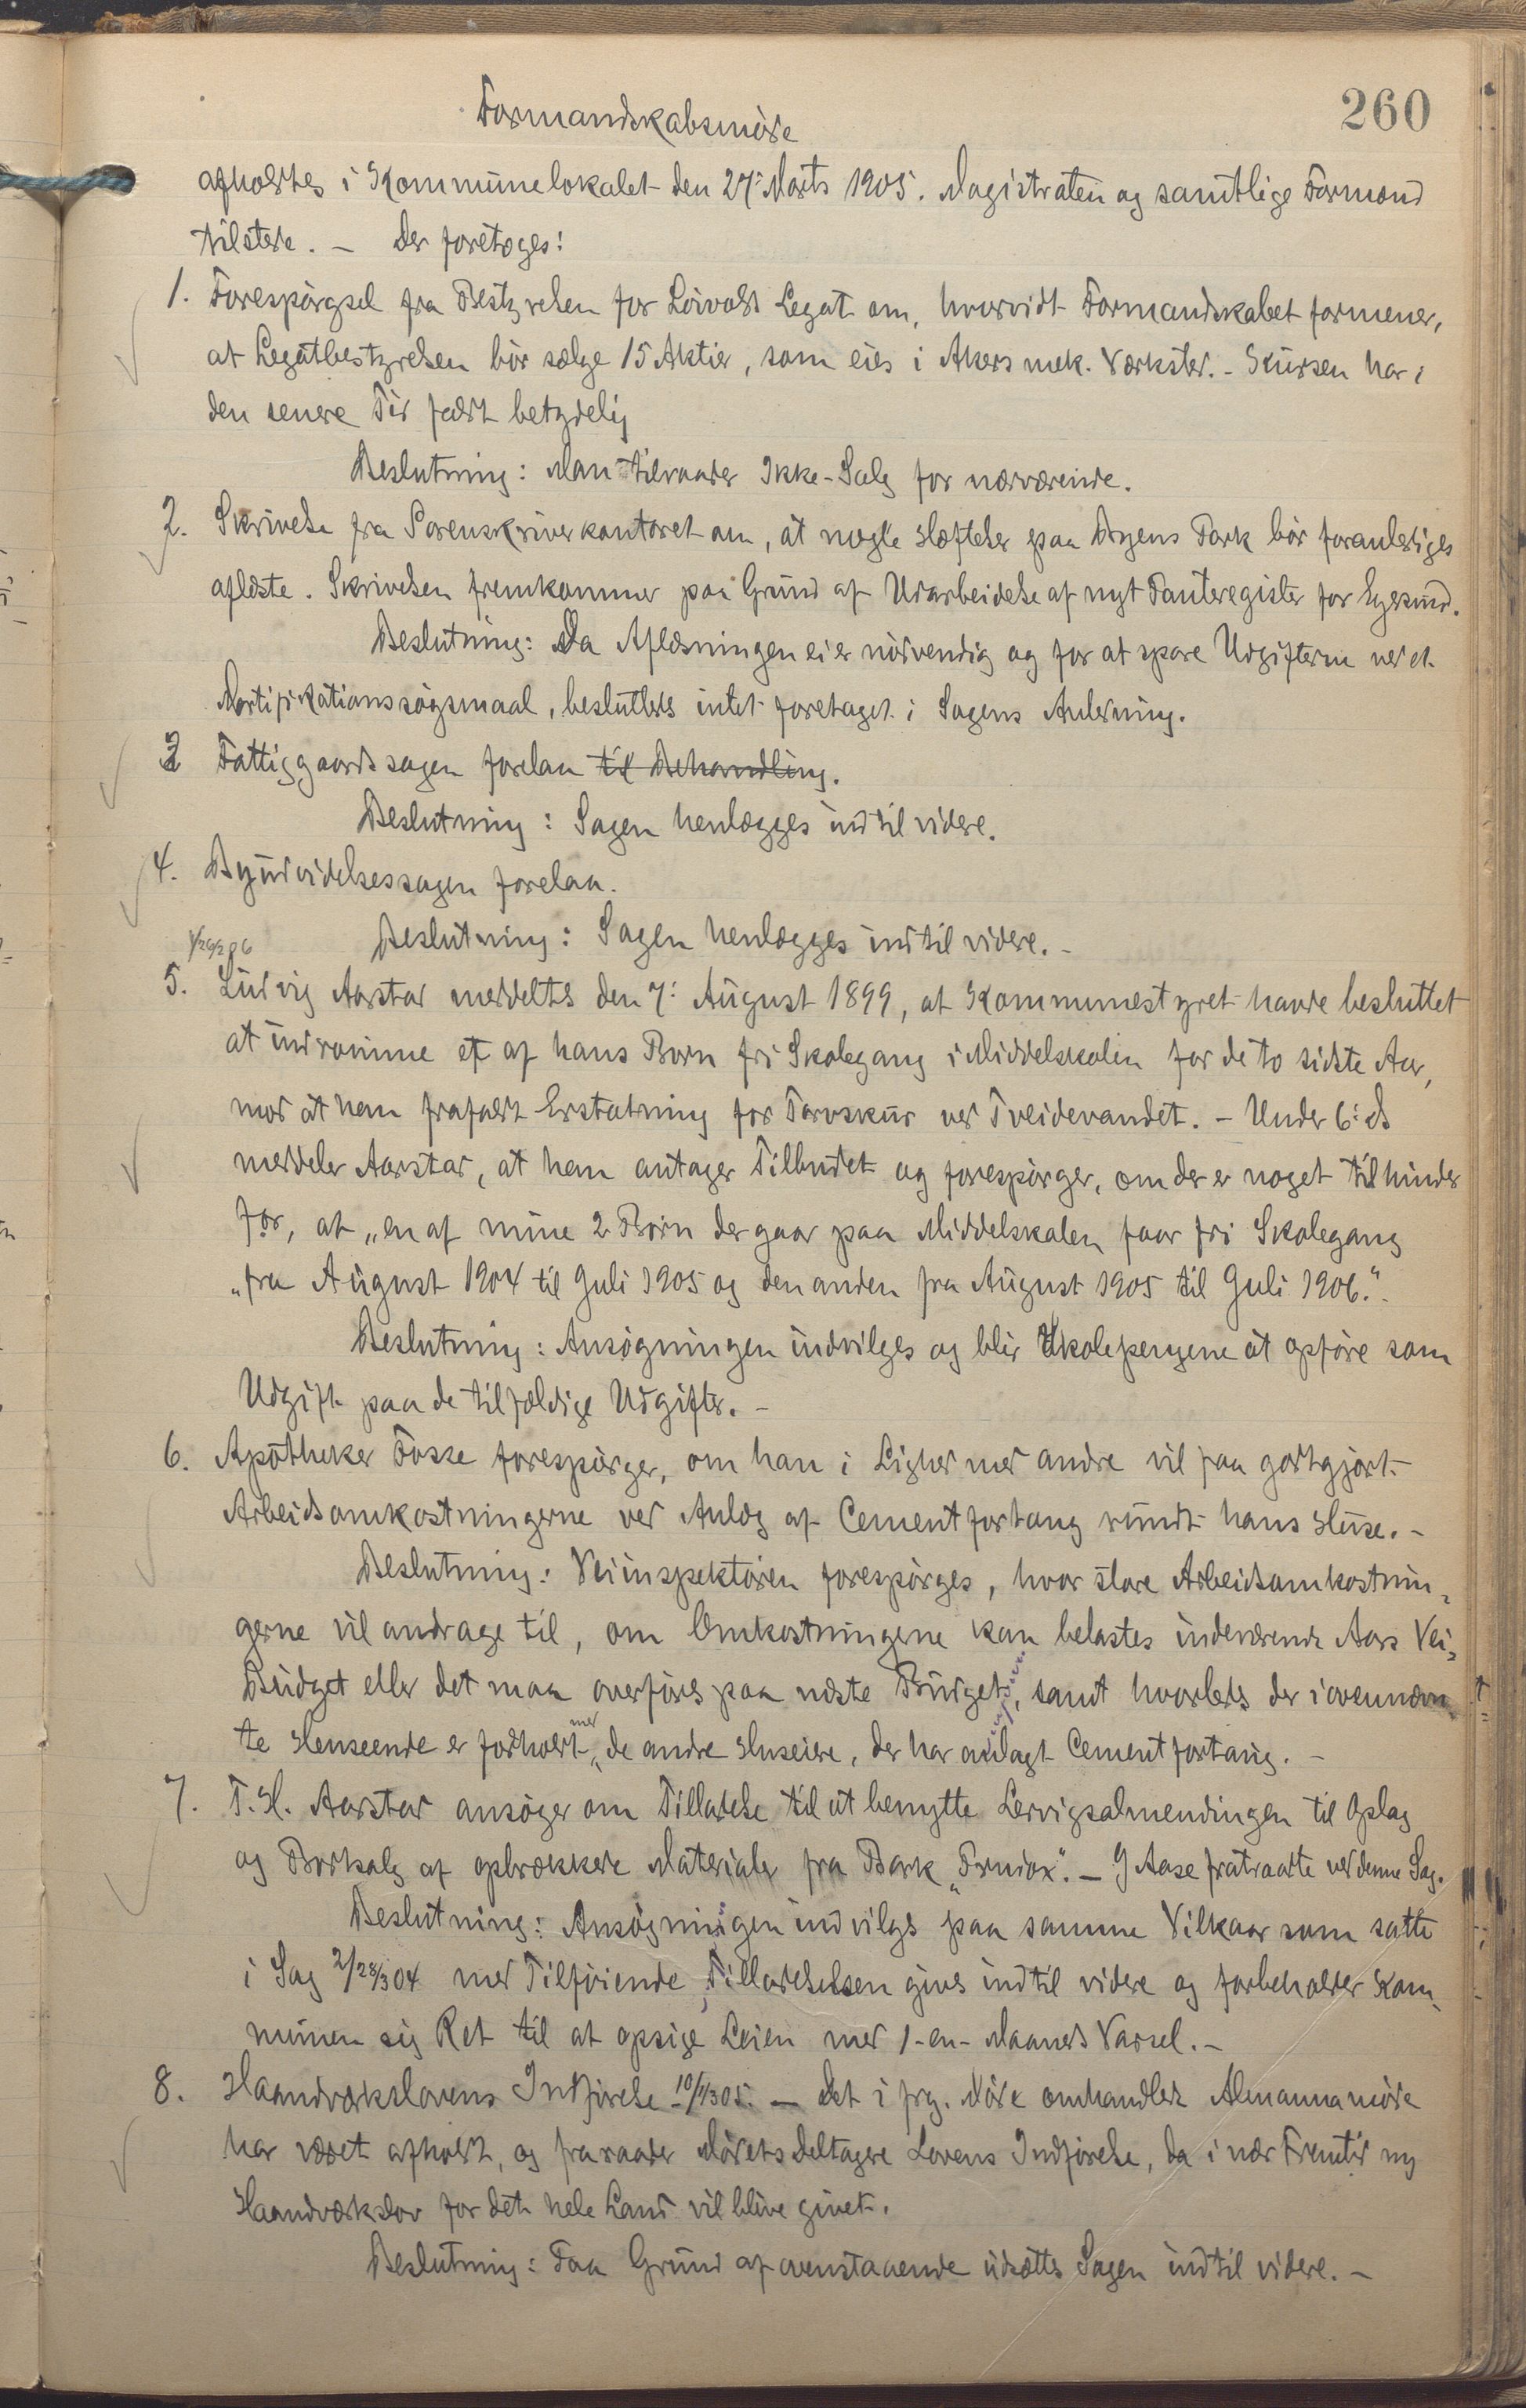 260
Formandskabsmøde
afholdtes i Kommunelokalet den 27de Marts 1905. Magistraten og samtlige Formænd
tilstede. – Der foretoges:
1. Forespørgsel fra Bestyrelsen for Løvolds Legat om, hvorvidt Formandskabet formener,
at Legatbestyrelsen bør sælge 15 Aktier, som eies i Akers mek. Værksted. – Kursen har i
den senere Tid faldt betydelig
Beslutning: Man tilraader Ikke-Salg for nærværende.
2. Skrivelse fra Sorenskriverkontoret om, at nogle Hæftelser paa Byens Park bør foranlediges
aflæste. Skrivelsen fremkommer paa Grund af Udarbeidelse af nyt Panteregister for Egersund.
Beslutning: Da Aflæsningen ei er nødvendig og for at spare Udgifterne ved et
Mortifikationssøgsmaal, besluttedes intet foretaget i Sagens Anledning.
3 Fattiggaardssagen forelaa til Behandling.
Beslutning: Sagen henlægges indtil videre.
4. Byudvidelsessagen forelaa.
Beslutning: Sagen henlægges indtil videre. –
1/26/2 06
5. Ludvig Aarstad meddeltes den 7de August 1899, at Kommunestyret havde besluttet
at indrømme et af hans Børn fri Skolegang i Middelskolen for de to sidste Aar,
mod at han frafaldt Erstatning for Torvskur ved Tveidevandet. – Under 6de ds
meddeler Aarstad, at han antager Tilbudet og forespørger, om der er noget til hinder
for, at „en af mine 2 Børn der gaar paa Middelskolen faar fri Skolegang
„fra August 1904 til Juli 1905 og den anden fra August 1905 til Juli 1906." –
Beslutning: Ansøgningen indvilges og blir Skolepengene at opføre som
Udgift paa de tilfældige Udgifter. –
6. Apotheker Fosse forespørger, om han i Lighed med andre vil faa godtgjort
Arbeidsomkostningerne ved Anlæg af Cementfortaug rundt hans Huse. –
Beslutning: Veiinspektøren forespørges, hvor store Arbeidsomkostnin-
gerne vil andrage til, om Omkostningerne kan belastes indeværende Aars Vei-
Budget eller det maa overføres paa næste Budget, samt hvorledes der i ovennævn-
te Henseende er forholdt med de andre Huseiere, der har anlagt Cementfortaug. –
7. T. H. Aarstad ansøger om Tilladelse til at benytte Lervigsalmendingen til Oplag
og Bortsalg af opbrækkede Materialer fra Bark „ “. – J Aase fratraadte ved denne Sag.
Beslutning: Ansøgningen indvilges paa samme Vilkaar som satte
i Sag 2/28/3 04 med Tilføiende, Tilladelsen gives indtil videre og forbeholder Kom-
munen sig Ret til at opsige Leien med 1-en-Maaneds Varsel. –
8. Haandværkslovens Indførelse 10/1/3 05. – Det i frg. Møde omhandlede Almannamøde
har været afholdt, og fraraader Mødets deltagere Lovens Indførelse, da i nær Fremtid ny
Haandværkslov for det hele Land vil blive givet.
Beslutning: Paa Grund af ovenstaaende udsættes Sagen indtil videre. –